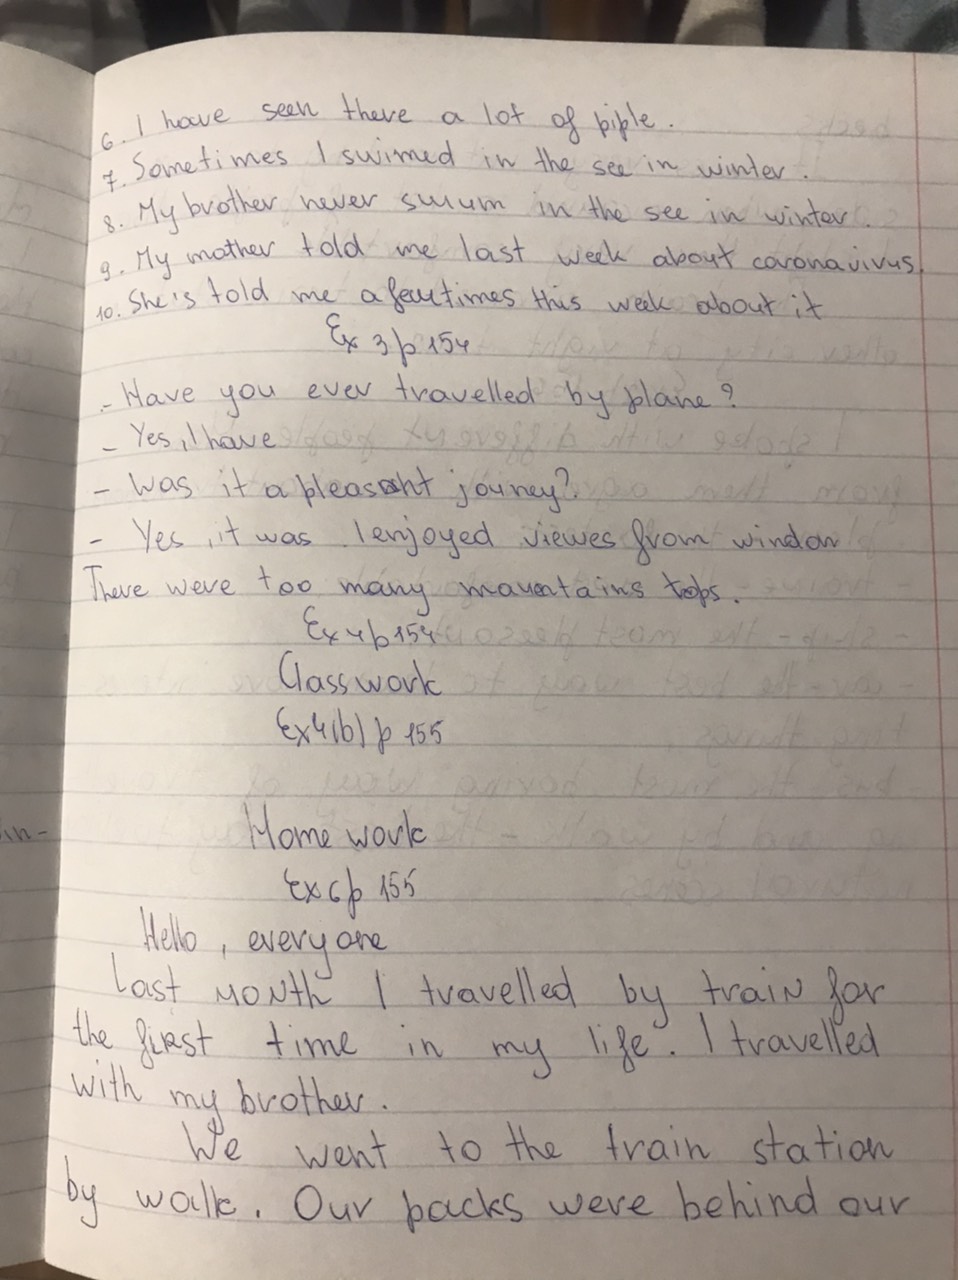 6. I have seen there a lot of piple.
7. Sometimes I swimed in the see in winter.
8. My brother never swum in the see in winter.
9. My mother told me last week about coronavirus.
10. She's told me a few times this week about it
Ex 3 p 154
- Have you ever travelled by plane?
- Yes, I have
- Was it a pleasant journey?
- Yes, it was. I enjoyed viewes from window
There were too many mauntains tops.
Ex 4 p 154
Classwork
Ex 4(b) p 155
in-
Home work
Ex 6 p 155
Hello, everyone
Last month I travelled by train for
the first time in my life. I travelled
with my brother.
We went to the train station
by walk. Our backs were behind our